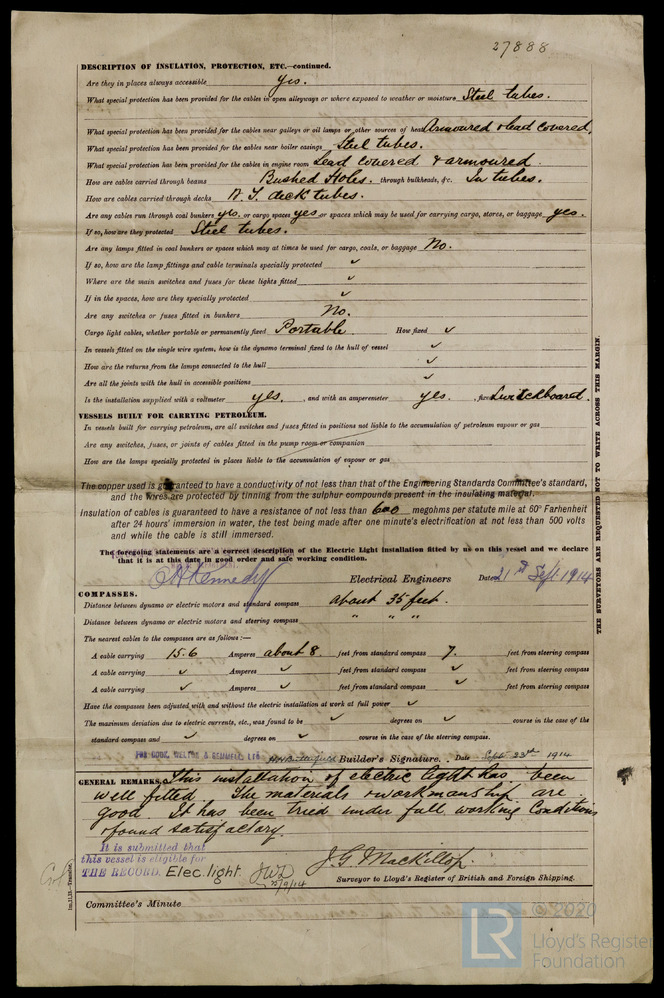 27888
DESCRIPTION OF INSULATION, PROTECTION, ETC.—continued.
Are they in places always accessible yes.
What special protection has been provided for the cables in open alleyways or where exposed to weather or moisture Steel tubes.
What special protection has been provided for the cables near galleys or oil lamps or other sources of heat Armoured & lead covered.
What special protection has been provided for the cables near boiler casings Steel tubes.
What special protection has been provided for the cables in engine room Lead covered & armoured.
How are cables carried through beams Bushed Holes. through bulkheads, &c. In tubes.
How are cables carried through decks W.T. deck tubes.
Are any cables run through coal bunkers yes or cargo spaces yes or spaces which may be used for carrying cargo, stores, or baggage yes.
If so, how are they protected Steel tubes.
Are any lamps fitted in coal bunkers or spaces which may at times be used for cargo, coals, or baggage No.
If so, how are the lamp fittings and cable terminals specially protected ✓
Where are the main switches and fuses for these lights fitted ✓
If in the spaces, how are they specially protected ✓
Are any switches or fuses fitted in bunkers No.
Cargo light cables, whether portable or permanently fixed Portable. How fixed ✓
In vessels fitted on the single wire system, how is the dynamo terminal fixed to the hull of vessel ✓
How are the returns from the lamps connected to the hull ✓
Are all the joints with the hull in accessible positions ✓
Is the installation supplied with a voltmeter yes. , and with an amperemeter yes. , fixed Switchboard.
VESSELS BUILT FOR CARRYING PETROLEUM.
In vessels built for carrying petroleum, are all switches and fuses fitted in positions not liable to the accumulation of petroleum vapour or gas
Are any switches, fuses, or joints of cables fitted in the pump room or companion
How are the lamps specially protected in places liable to the accumulation of vapour or gas
The copper used is guaranteed to have a conductivity of not less than that of the Engineering Standards Committee's standard,
and the wires are protected by tinning from the sulphur compounds present in the insulating material.
Insulation of cables is guaranteed to have a resistance of not less than 600 megohms per statute mile at 60° Farhenheit
after 24 hours' immersion in water, the test being made after one minute's electrification at not less than 500 volts
and while the cable is still immersed.
The foregoing statements are a correct description of the Electric Light installation fitted by us on this vessel and we declare
that it is at this date in good order and safe working condition.
Kennedy Electrical Engineers Date 21st Sept. 1914
COMPASSES.
Distance between dynamo or electric motors and standard compass about 35 feet.
Distance between dynamo or electric motors and steering compass " " "
The nearest cables to the compasses are as follows:—
A cable carrying 15.6 Amperes about 8 feet from standard compass 7. feet from steering compass
A cable carrying ✓ Amperes ✓ feet from standard compass ✓ feet from steering compass
A cable carrying ✓ Amperes ✓ feet from standard compass ✓ feet from steering compass
Have the compasses been adjusted with and without the electric installation at work at full power ✓
The maximum deviation due to electric currents, etc., was found to be ✓ degrees on ✓ course in the case of the
standard compass and ✓ degrees on ✓ course in the case of the steering compass.
Builder's Signature. Date Sept 23rd 1914
GENERAL REMARKS. This installation of electric light has been
well fitted. The materials & workmanship are
good. It has been tried under full working conditions
& found satisfactory.
It is submitted that
this vessel is eligible for
THE RECORD. Elec. light
J.G. Mackillop.
Surveyor to Lloyd's Register of British and Foreign Shipping.
Committee's Minute
THE SURVEYORS ARE REQUESTED NOT TO WRITE ACROSS THIS MARGIN.
© 2020
LR
Lloyd's Register
Foundation